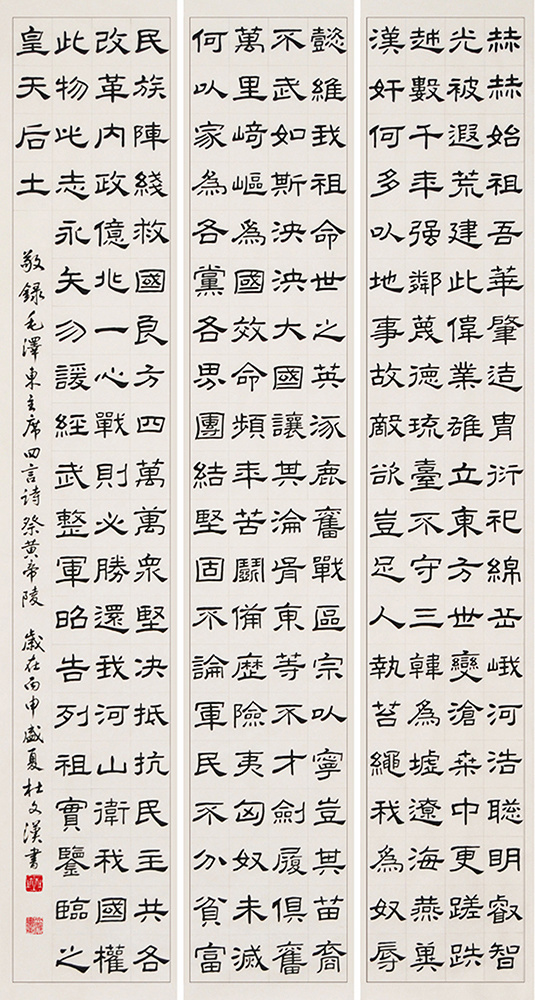 赫赫始祖吾華肇造胄衍祀綿岳峨河浩聰明叡智
光被遐荒建此偉業雄立東方世變滄桑中更蹉跌
越數千年强鄰蔑德琉臺不守三韓為墟遼海燕冀
漢奸何多以地事故敵欲豈足人執笞繩我為奴辱
懿維我祖命世之英涿鹿奮戰區宗以寧豈其苗裔
不武如斯泱泱大國讓其淪胥東等不才劍履俱奮
萬里崎嶇為國效命頻年苦鬭備歷險夷匈奴未滅
何以家為各黨各界團結堅固不論軍民不分貧富
民族陣綫救國良方四萬萬衆堅決抵抗民主共各
改革內政億兆一心戰則必勝還我河山衛我國權
此物此志永矢勿諼經武整軍昭告列祖實鑒臨之
皇天后土
敬錄毛澤東主席四言詩祭黃帝陵 歲在丙申盛夏杜文漢書